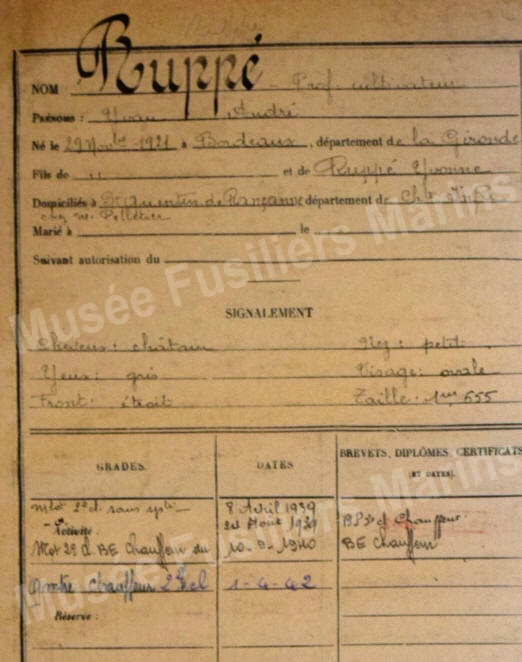 NOM Ruppé - Prof. cultivateur
PRÉNOMS : Yvan André
Né le 29 Novbre 1921 à Bordeaux, département de la Gironde
Fils de " et de Ruppé Yvonne
Domiciliés à St Quentin de Rançanne département de Chte Infre
chez Mr Pelletier
Marié à le
Suivant autorisation du
SIGNALEMENT
Cheveux : châtain Nez : petit
Yeux : gris Visage : ovale
Front : étroit Taille : 1m,555
GRADES. DATES BREVETS, DIPLÔMES, CERTIFICATS
(ET DATES).
Mlot 2e cl. sans spté 8 Avril 1939
Activité : 24 Août 1939 BP d Chauffeur
Mot 2e cl. BE Chauffeur du 10-9-1940 BE Chauffeur
Qmtre Chauffeur 2e cl 1-4-42
Réserve :
Musée Fusiliers Marins
Musée Fusiliers Marins